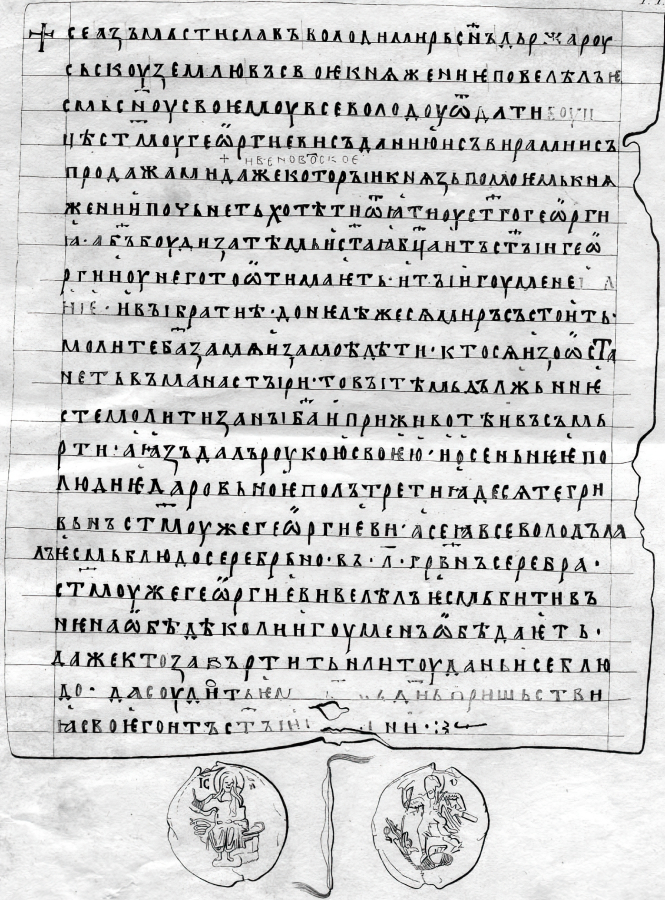 + сеазъмьстиславъволодимирьсн҃ъдьржароу
сьскоуземлювъсвоѥкнѧжениѥповелѣлъѥ
смьсн҃оусвоѥмоувсеволодоуѿдати
цѣст҃моугеѡргиевисъданиюисъвирамиисъ
+ивеновоское
продажамидажекоторꙑикнѧзьпомоѥмькнѧ
жениипочьнетьхотѣтиѿꙗтиоуст҃гогеѡрги
ꙗ·аб҃ъбоудизатѣмьистаꙗб҃цаитъст҃ꙑигеѡ
ргииоунеготоѿтимаѥть·итꙑигоумене
иѥ·ивꙑбратиѣ·донѥлѣжесѧмиръсъстоить·
молитеб҃азамѧизамоѣдѣти·ктосѧизоѡста
нетьвъманастꙑри·товꙑтѣмьдължьниѥ
стемолитизанꙑб҃аиприживотѣивъсъмь
рти·аꙗзъдалъроукоюсвоѥю·иосеньнѥѥпо
людиѥдаровьноѥполътретиꙗдесѧтегри
вьнъст҃моужегеѡргиеви·асеꙗвсеволодъда
лъѥсмьблюдосеребрьно·въ·л҃·грв҃нъсеребра·
ст҃моужегеѡргиевивелѣлъѥсмьбитивъ
нѥнаѡбѣдѣколиигоуменъѡбѣдаѥть·
дажектозапъртитьилитоуданьисеблю
до·дасоудитьѥм дн҃ьпришьстви
ꙗсвоѥгоитъст҃ꙑи